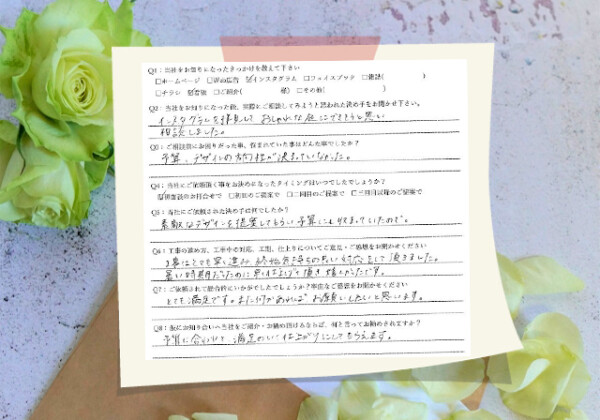 Q1：当社をお知りになったきっかけを教えて下さい
□ホームページ □Web広告 ☑インスタグラム □フェイスブック □雑誌( )
□チラシ ☑看板 □ご紹介( 様) □その他( )
Q2：当社をお知りになった後、実際にご相談してみようと思われた決め手をお聞かせ下さい。
インスタグラムを拝見して おしゃれな庭にできそうと思い
相談しました。
Q3：ご相談前にお困りだった事、悩まれていた事はどんな事でしたか？
予算、デザインの方向性が決まっていなかった。
Q4：当社にご依頼頂く事をお決めになったタイミングはいつでしたでしょうか？
☑初回面談のお打合せで □初回のご提案で □二回目のご提案で □三回目以降のご提案で
Q5：当社にご依頼された決め手は何でしたか？
素敵なデザインを提案してもらい予算にも収まっていたので。
Q6：工事の進め方、工事中の対応、工期、仕上りについてご意見・ご感想をお聞かせください
工事はとても早く進み 終始気持ちの良い対応をして頂きました。
暑い時期だったために早く仕上げて頂き嬉しかったです。
Q7：ご依頼されて総合的にいかがでしたでしょうか？率直なご感想をお聞かせください
とても満足です。また何かあれば お願いしたいと思います。
Q8：仮にお知り合いへ当社をご紹介・お勧め頂けるならば、何と言ってお勧めされますか？
予算に合わせて 満足のいく仕上がりにしてもらえます。